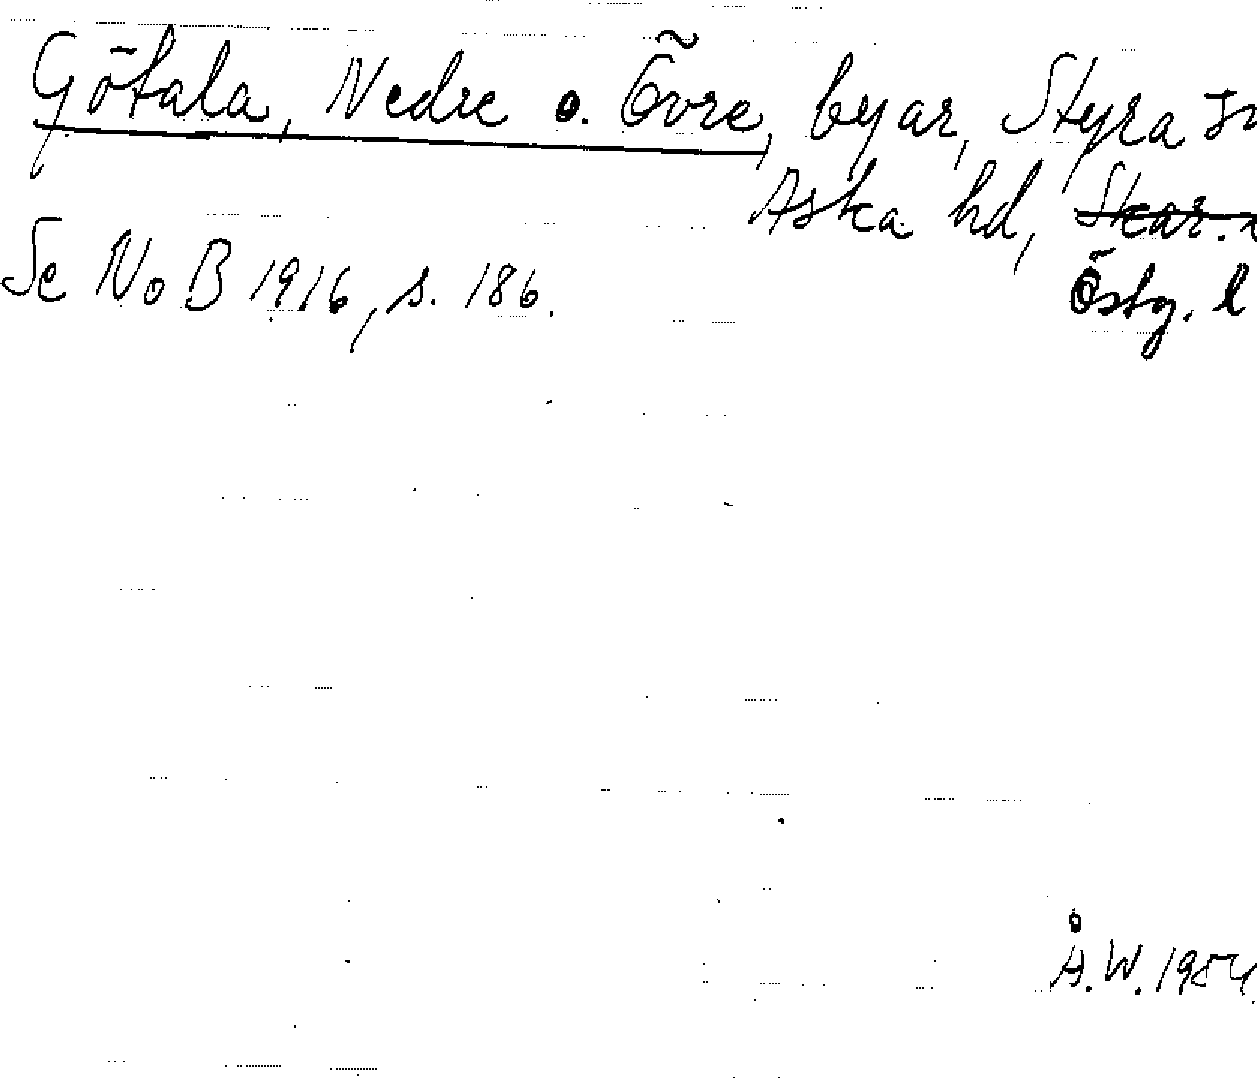 Götala, Nedre o. Övre, byar, Styra sn
Aska hd, Skar.
Östg. l
Se NoB 1916, s. 186.
Å.W. 1954.